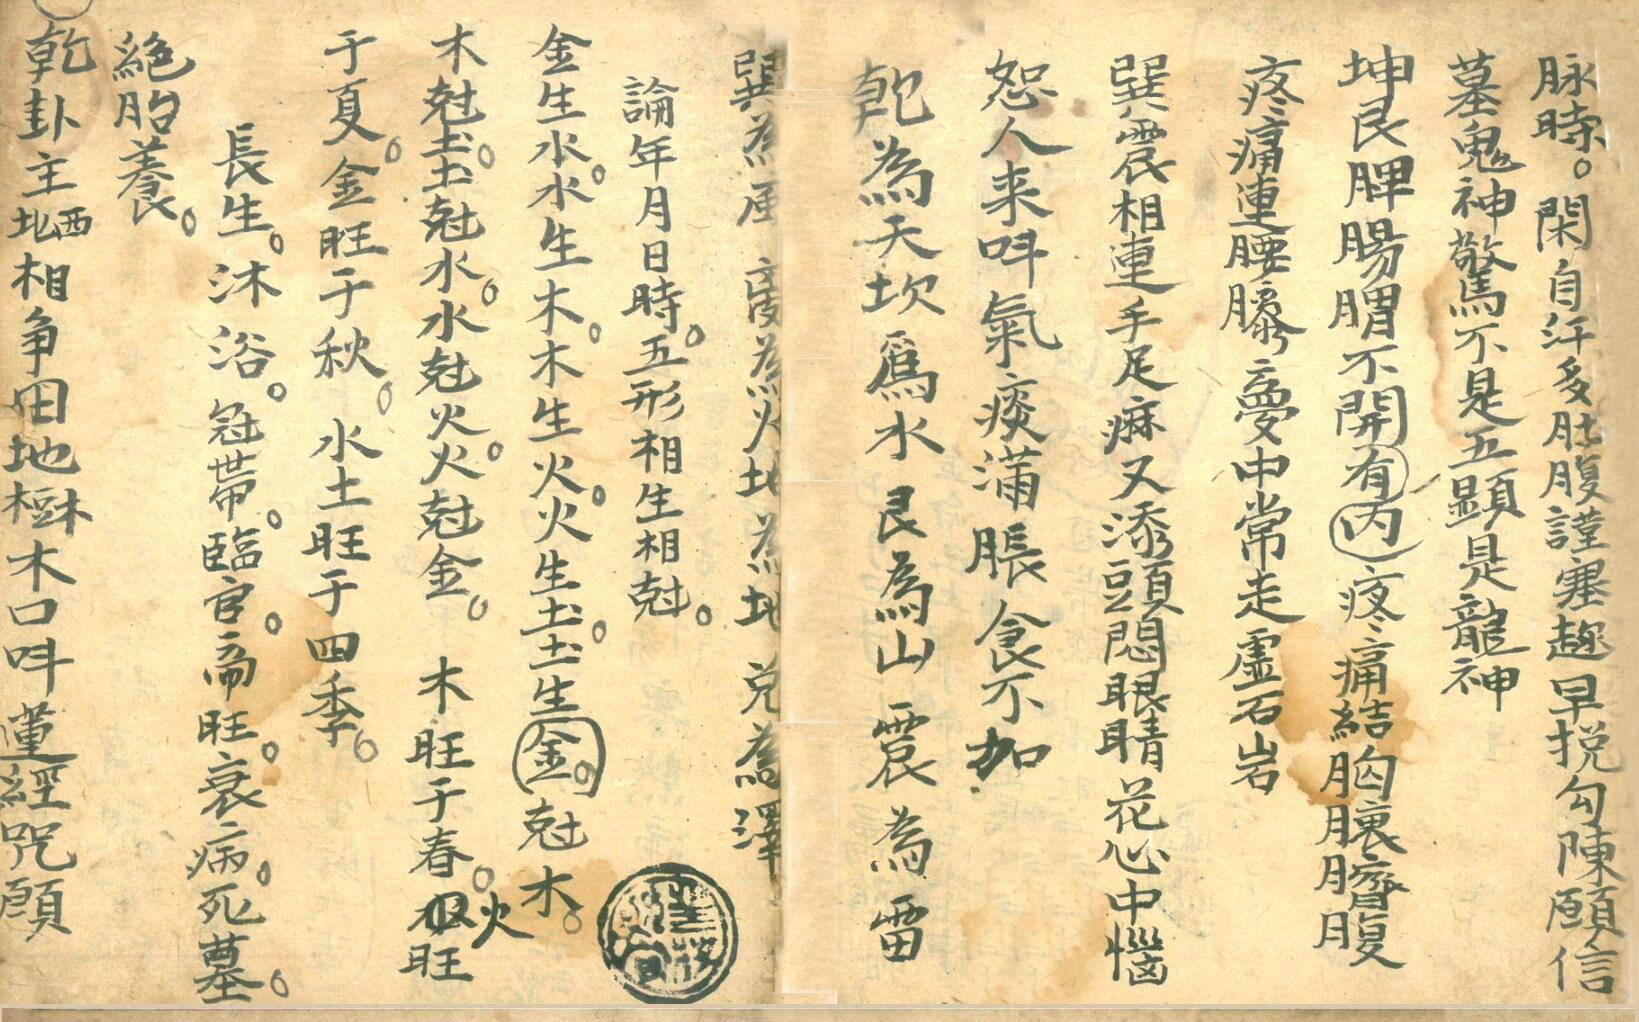 脉時。閑自汗多肚腹謹塞趣早挩勾陳願信
墓鬼神驚不是五顕是龍神
坤艮脾腸胃不開有内疼痛結胸裏臍腹
疼痛連腰膝夢中常走虛石岩
巽震相連手足麻又添頭悶眼睛花心中惱
怨人来呌氣痰滿脹食不加
乾為天坎爲水艮為山震為雷
巽為風 為火地為地兌為澤
論年月日時。五形相生相尅。
金生水。水生木。木生火。火生土。土生金。金尅木。
木尅土。土尅水。水尅火。火尅金。木旺于春。火旺
于夏。金旺于秋。水土旺于四季。
長生。沐浴。冠帶。臨官。帝旺。衰病。死墓。
絕胎養。
乾卦主西北相争田地 木木口呌 經咒願